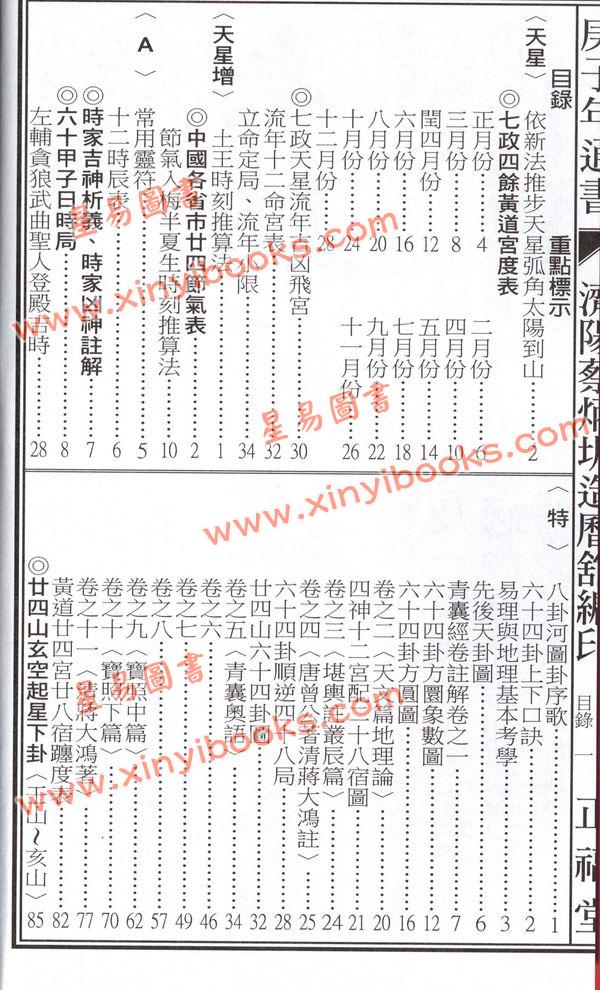 庚子年通書
濟陽蔡
造曆
編印
目錄 一
正福堂
目錄 重點標示
〈天星〉 依新法推步天星弧角太陽到山……2
◎七政四餘黃道宮度表
正月份……4 二月份……6
三月份……8 四月份……10
閏四月份……12 五月份……14
六月份……16 七月份……18
八月份……20 九月份……22
十月份……24 十一月份……26
十二月份……28
◎七政天星流年吉凶飛宮……30
流年十二命宮表……32
立命定局、流年小限……34
〈天星增〉 土王時刻推算法……1
◎中國各省市廿四節氣表……2
節氣入梅半夏生時刻推算法……10
〈A〉 常用靈符……5
十二時辰表……6
◎時家吉神析義、時家凶神註解……7
◎六十甲子日時局……8
左輔貪狼武曲聖人登殿吉時……28
〈特〉 八卦河圖卦序歌……1
六十四卦上下口訣……2
易理與地理基本考學……3
先後天卦圖……6
青囊經卷註解卷之一……7
六十四卦方圜象數圖……12
六十四卦方圓圖……16
卷之二〈天文篇地理論〉……20
四神十二宮配二十八宿圖……21
卷之三〈堪輿註叢辰篇〉……24
卷之四〈唐曾公著清蔣大鴻註〉……25
六十四卦順逆四十八局……28
廿四山六十四卦圖……32
卷之五〈青囊奧語〉……34
卷之六……46
卷之七……49
卷之八……57
卷之九〈寶照中篇〉……62
卷之十〈寶照下篇〉……70
卷之十一〈清蔣大鴻著〉……77
黃道廿四宮廿八宿躔度表……82
◎廿四山玄空起星下卦〈壬山～亥山〉……85
星易圖書
www.xinyibooks.com
星易圖書
www.xinyibooks.com
星易圖書
www.xinyibooks.com
星易圖書
www.xinyibooks.com